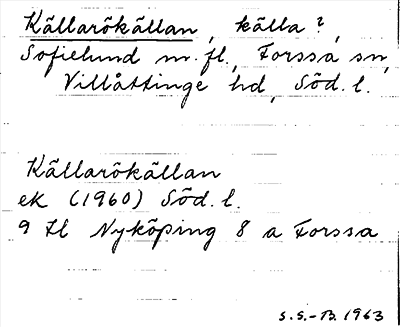 Källarökällan, källa?,
Sofielund m.fl., Forssa sn,
Villåttinge hd, Söd. l.
Källarökällan
ek (1960) Söd. l.
9 H Nyköping 8 a Forssa
S.S.-B. 1963